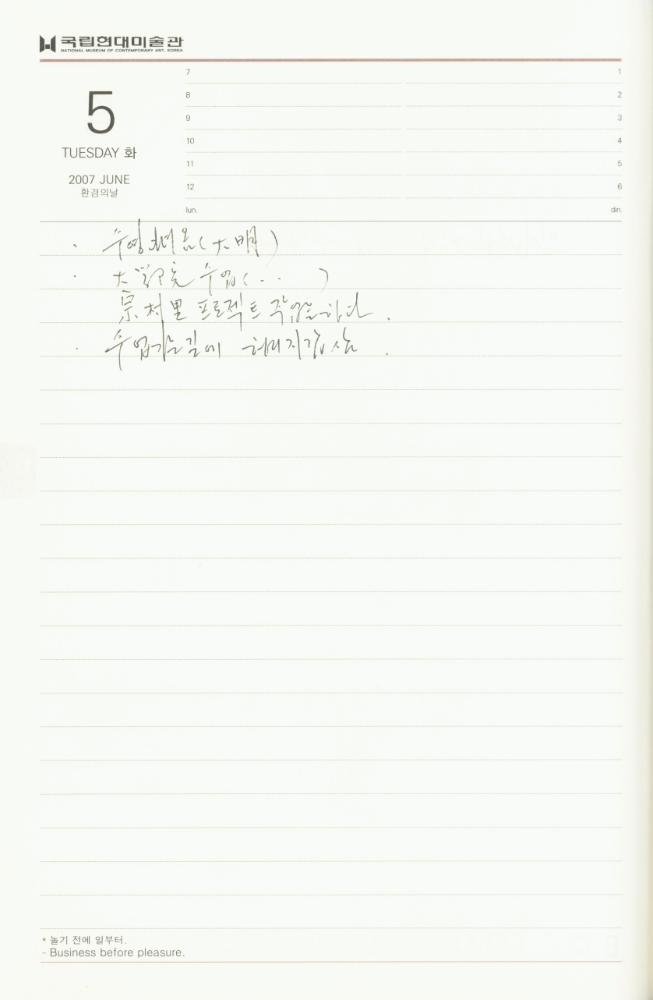 국립현대미술관
NATIONAL MUSEUM OF CONTEMPORARY ART, KOREA
5
TUESDAY 화
2007 JUNE
환경의날
7
8
9
10
11
12
lun.
1
2
3
4
5
6
din.
· 수영 (大明)
· 大學院 수업( · · )
프로젝트 작업을하다.
· 수업가는길에
* 놀기 전에 일부터.
- Business before pleasure.